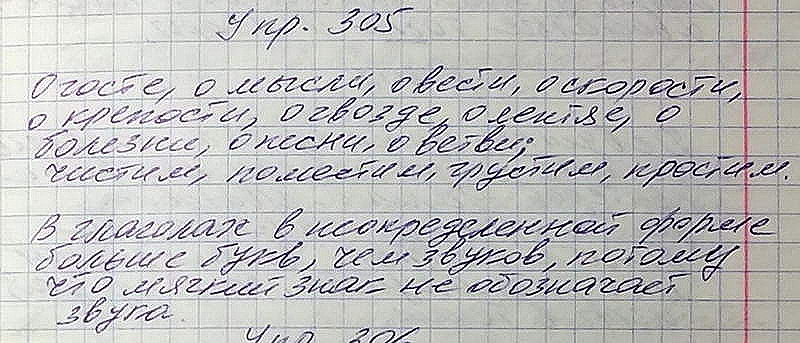 Упр. 305
О госте, о мысли, о вести, о скорости,
о крепости, о гвозде, о лентяе, о
болезни, о песни, о ветви;
чистим, поместим, грустим, простим.
В глаголах в неопределенной форме
больше букв, чем звуков, потому
что мягкий знак не обозначает
звука.
Упр. 306